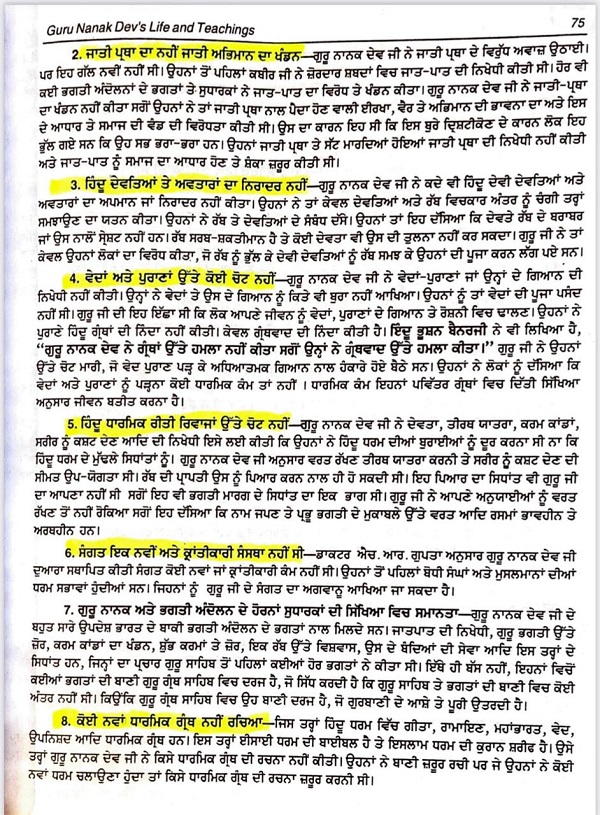 Guru Nanak Dev's Life and Teachings 75
2. ਜਾਤੀ ਪ੍ਰਥਾ ਦਾ ਨਹੀਂ ਜਾਤੀ ਅਭਿਮਾਨ ਦਾ ਖੰਡਨ—ਗੁਰੂ ਨਾਨਕ ਦੇਵ ਜੀ ਨੇ ਜਾਤੀ ਪ੍ਰਥਾ ਦੇ ਵਿਰੁੱਧ ਅਵਾਜ਼ ਉਠਾਈ।
ਪਰ ਇਹ ਗੱਲ ਨਵੀਂ ਨਹੀਂ ਸੀ। ਉਹਨਾਂ ਤੋਂ ਪਹਿਲਾਂ ਕਬੀਰ ਜੀ ਨੇ ਜ਼ੋਰਦਾਰ ਸ਼ਬਦਾਂ ਵਿਚ ਜਾਤ-ਪਾਤ ਦੀ ਨਿਖੇਧੀ ਕੀਤੀ ਸੀ। ਹੋਰ ਵੀ
ਕਈ ਭਗਤੀ ਅੰਦੋਲਨਾਂ ਦੇ ਭਗਤਾਂ ਤੇ ਸੁਧਾਰਕਾਂ ਨੇ ਜਾਤ-ਪਾਤ ਦਾ ਵਿਰੋਧ ਤੇ ਖੰਡਨ ਕੀਤਾ ਸੀ। ਗੁਰੂ ਨਾਨਕ ਦੇਵ ਜੀ ਨੇ ਜਾਤੀ-ਪ੍ਰਥਾ
ਦਾ ਖੰਡਨ ਨਹੀਂ ਕੀਤਾ ਸਗੋਂ ਉਹਨਾਂ ਨੇ ਤਾਂ ਜਾਤੀ ਪ੍ਰਥਾ ਨਾਲ ਪੈਦਾ ਹੋਣ ਵਾਲੀ ਈਰਖਾ, ਵੈਰ ਤੇ ਅਭਿਮਾਨ ਦੀ ਭਾਵਨਾ ਦਾ ਅਤੇ ਇਸ
ਦੇ ਆਧਾਰ ਤੇ ਸਮਾਜ ਦੀ ਵੰਡ ਦੀ ਵਿਰੋਧਤਾ ਕੀਤੀ ਸੀ। ਉਸ ਦਾ ਕਾਰਨ ਇਹ ਸੀ ਕਿ ਇਸ ਬੁਰੇ ਦ੍ਰਿਸ਼ਟੀਕੋਣ ਦੇ ਕਾਰਨ ਲੋਕ ਇਹ
ਭੁੱਲ ਗਏ ਸਨ ਕਿ ਉਹ ਸਭ ਭਰਾ-ਭਰਾ ਹਨ। ਉਹਨਾਂ ਜਾਤੀ ਪ੍ਰਥਾ ਤੇ ਸੱਟ ਮਾਰਦਿਆਂ ਹੋਇਆਂ ਜਾਤੀ ਪ੍ਰਥਾ ਦੀ ਨਿਖੇਧੀ ਨਹੀਂ ਕੀਤੀ
ਅਤੇ ਜਾਤ-ਪਾਤ ਨੂੰ ਸਮਾਜ ਦਾ ਅਧਾਰ ਹੋਣ ਤੇ ਸ਼ੰਕਾ ਜ਼ਰੂਰ ਕੀਤੀ ਸੀ।
3. ਹਿੰਦੂ ਦੇਵਤਿਆਂ ਤੇ ਅਵਤਾਰਾਂ ਦਾ ਨਿਰਾਦਰ ਨਹੀਂ—ਗੁਰੂ ਨਾਨਕ ਦੇਵ ਜੀ ਨੇ ਕਦੇ ਵੀ ਹਿੰਦੂ ਦੇਵੀ ਦੇਵਤਿਆਂ ਅਤੇ
ਅਵਤਾਰਾਂ ਦਾ ਅਪਮਾਨ ਜਾਂ ਨਿਰਾਦਰ ਨਹੀਂ ਕੀਤਾ। ਉਹਨਾਂ ਨੇ ਤਾਂ ਕੇਵਲ ਦੇਵਤਿਆਂ ਅਤੇ ਰੱਬ ਵਿਚਕਾਰ ਅੰਤਰ ਨੂੰ ਚੰਗੀ ਤਰ੍ਹਾਂ
ਸਮਝਾਉਣ ਦਾ ਯਤਨ ਕੀਤਾ। ਉਹਨਾਂ ਨੇ ਰੱਬ ਤੇ ਦੇਵਤਿਆਂ ਦੇ ਸੰਬੰਧ ਦੱਸੇ। ਉਹਨਾਂ ਤਾਂ ਇਹ ਦੱਸਿਆ ਕਿ ਦੇਵਤੇ ਰੱਬ ਦੇ ਬਰਾਬਰ
ਜਾਂ ਉਸ ਨਾਲੋਂ ਸ੍ਰੇਸ਼ਟ ਨਹੀਂ ਹਨ। ਰੱਬ ਸਰਬ-ਸ਼ਕਤੀਮਾਨ ਹੈ ਤੇ ਕੋਈ ਦੇਵਤਾ ਵੀ ਉਸ ਦੀ ਤੁਲਨਾ ਨਹੀਂ ਕਰ ਸਕਦਾ। ਗੁਰੂ ਜੀ ਨੇ ਤਾਂ
ਕੇਵਲ ਉਹਨਾਂ ਲੋਕਾਂ ਦਾ ਵਿਰੋਧ ਕੀਤਾ, ਜੋ ਰੱਬ ਨੂੰ ਭੁੱਲ ਕੇ ਦੇਵੀ ਦੇਵਤਿਆਂ ਨੂੰ ਰੱਬ ਸਮਝ ਕੇ ਉਹਨਾਂ ਦੀ ਪੂਜਾ ਕਰਨ ਲੱਗ ਪਏ ਸਨ।
4. ਵੇਦਾਂ ਅਤੇ ਪੁਰਾਣਾਂ ਉੱਤੇ ਕੋਈ ਚੋਟ ਨਹੀਂ—ਗੁਰੂ ਨਾਨਕ ਦੇਵ ਜੀ ਨੇ ਵੇਦਾਂ-ਪੁਰਾਣਾਂ ਜਾਂ ਉਨ੍ਹਾਂ ਦੇ ਗਿਆਨ ਦੀ
ਨਿਖੇਧੀ ਨਹੀਂ ਕੀਤੀ। ਉਨ੍ਹਾਂ ਨੇ ਵੇਦਾਂ ਤੇ ਉਸ ਦੇ ਗਿਆਨ ਨੂੰ ਕਿਤੇ ਵੀ ਬੁਰਾ ਨਹੀਂ ਆਖਿਆ। ਉਹਨਾਂ ਨੂੰ ਤਾਂ ਵੇਦਾਂ ਦੀ ਪੂਜਾ ਪਸੰਦ
ਨਹੀਂ ਸੀ। ਗੁਰੂ ਜੀ ਦੀ ਇਹ ਇੱਛਾ ਸੀ ਕਿ ਲੋਕ ਆਪਣੇ ਜੀਵਨ ਨੂੰ ਵੇਦਾਂ, ਪੁਰਾਣਾਂ ਦੇ ਗਿਆਨ ਤੇ ਰੋਸ਼ਨੀ ਵਿਚ ਢਾਲਣ। ਉਹਨਾਂ ਨੇ
ਪੁਰਾਣੇ ਹਿੰਦੂ ਗ੍ਰੰਥਾਂ ਦੀ ਨਿੰਦਾ ਨਹੀਂ ਕੀਤੀ। ਕੇਵਲ ਗ੍ਰੰਥਵਾਦ ਦੀ ਨਿੰਦਾ ਕੀਤੀ ਹੈ। ਇੰਦੂ ਭੂਸ਼ਨ ਬੈਨਰਜੀ ਨੇ ਵੀ ਲਿਖਿਆ ਹੈ,
“ਗੁਰੂ ਨਾਨਕ ਦੇਵ ਨੇ ਗ੍ਰੰਥਾਂ ਉੱਤੇ ਹਮਲਾ ਨਹੀਂ ਕੀਤਾ ਸਗੋਂ ਉਨ੍ਹਾਂ ਨੇ ਗ੍ਰੰਥਵਾਦ ਉੱਤੇ ਹਮਲਾ ਕੀਤਾ।” ਗੁਰੂ ਜੀ ਨੇ ਉਹਨਾਂ
ਉੱਤੇ ਚੋਟ ਮਾਰੀ, ਜੋ ਵੇਦ ਪੁਰਾਨ ਪੜ੍ਹ ਕੇ ਅਧਿਆਤਮਿਕ ਗਿਆਨ ਨਾਲ ਹੰਕਾਰੇ ਹੋਏ ਬੈਠੇ ਸਨ। ਉਹਨਾਂ ਨੇ ਲੋਕਾਂ ਨੂੰ ਦੱਸਿਆ ਕਿ
ਵੇਦਾਂ ਅਤੇ ਪੁਰਾਣਾਂ ਨੂੰ ਪੜ੍ਹਨਾ ਕੋਈ ਧਾਰਮਿਕ ਕੰਮ ਤਾਂ ਨਹੀਂ । ਧਾਰਮਿਕ ਕੰਮ ਇਹਨਾਂ ਪਵਿੱਤਰ ਗ੍ਰੰਥਾਂ ਵਿਚ ਦਿੱਤੀ ਸਿੱਖਿਆ
ਅਨੁਸਾਰ ਜੀਵਨ ਬਤੀਤ ਕਰਨਾ ਹੈ।
5. ਹਿੰਦੂ ਧਾਰਮਿਕ ਰੀਤੀ ਰਿਵਾਜਾਂ ਉੱਤੇ ਚੋਟ ਨਹੀਂ—ਗੁਰੂ ਨਾਨਕ ਦੇਵ ਜੀ ਨੇ ਦੇਵਤਾ, ਤੀਰਥ ਯਾਤਰਾ, ਕਰਮ ਕਾਂਡਾਂ,
ਸਰੀਰ ਨੂੰ ਕਸ਼ਟ ਦੇਣ ਆਦਿ ਦੀ ਨਿਖੇਧੀ ਇਸੇ ਲਈ ਕੀਤੀ ਕਿ ਉਹਨਾਂ ਨੇ ਹਿੰਦੂ ਧਰਮ ਦੀਆਂ ਬੁਰਾਈਆਂ ਨੂੰ ਦੂਰ ਕਰਨਾ ਸੀ ਨਾ ਕਿ
ਹਿੰਦੂ ਧਰਮ ਦੇ ਮੁੱਢਲੇ ਸਿਧਾਂਤਾਂ ਨੂੰ। ਗੁਰੂ ਨਾਨਕ ਦੇਵ ਜੀ ਅਨੁਸਾਰ ਵਰਤ ਰੱਖਣ ਤੀਰਥ ਯਾਤਰਾ ਕਰਨੀ ਤੇ ਸਰੀਰ ਨੂੰ ਕਸ਼ਟ ਦੇਣ ਦੀ
ਸੀਮਤ ਉਪ-ਯੋਗਤਾ ਸੀ। ਰੱਬ ਦੀ ਪ੍ਰਾਪਤੀ ਉਸ ਨੂੰ ਪਿਆਰ ਕਰਨ ਨਾਲ ਹੀ ਹੋ ਸਕਦੀ ਸੀ। ਇਹ ਪਿਆਰ ਦਾ ਸਿਧਾਂਤ ਵੀ ਗੁਰੂ ਜੀ
ਦਾ ਆਪਣਾ ਨਹੀਂ ਸੀ ਸਗੋਂ ਇਹ ਵੀ ਭਗਤੀ ਮਾਰਗ ਦੇ ਸਿਧਾਂਤ ਦਾ ਇਕ ਭਾਗ ਸੀ। ਗੁਰੂ ਜੀ ਨੇ ਆਪਣੇ ਅਨੁਯਾਈਆਂ ਨੂੰ ਵਰਤ
ਰੱਖਣ ਤੋਂ ਨਹੀਂ ਰੋਕਿਆ ਸਗੋਂ ਇਹ ਦੱਸਿਆ ਕਿ ਨਾਮ ਜਪਣ ਤੇ ਪ੍ਰਭੂ ਭਗਤੀ ਦੇ ਮੁਕਾਬਲੇ ਉੱਤੇ ਵਰਤ ਆਦਿ ਰਸਮਾਂ ਭਾਵਹੀਨ ਤੇ
ਅਰਥਹੀਨ ਹਨ।
6. ਸੰਗਤ ਇਕ ਨਵੀਂ ਅਤੇ ਕ੍ਰਾਂਤੀਕਾਰੀ ਸੰਸਥਾ ਨਹੀਂ ਸੀ—ਡਾਕਟਰ ਐਚ. ਆਰ. ਗੁਪਤਾ ਅਨੁਸਾਰ ਗੁਰੂ ਨਾਨਕ ਦੇਵ ਜੀ
ਦੁਆਰਾ ਸਥਾਪਿਤ ਕੀਤੀ ਸੰਗਤ ਕੋਈ ਨਵਾਂ ਜਾਂ ਕ੍ਰਾਂਤੀਕਾਰੀ ਕੰਮ ਨਹੀਂ ਸੀ। ਉਹਨਾਂ ਤੋਂ ਪਹਿਲਾਂ ਬੋਧੀ ਸੰਘਾਂ ਅਤੇ ਮੁਸਲਮਾਨਾਂ ਦੀਆਂ
ਧਰਮ ਸਭਾਵਾਂ ਹੁੰਦੀਆਂ ਸਨ। ਜਿਹਨਾਂ ਨੂੰ ਗੁਰੂ ਜੀ ਦੇ ਸੰਗਤ ਦਾ ਅਗਵਾਨੂ ਆਖਿਆ ਜਾ ਸਕਦਾ ਹੈ।
7. ਗੁਰੂ ਨਾਨਕ ਅਤੇ ਭਗਤੀ ਅੰਦੋਲਨ ਦੇ ਹੋਰਨਾਂ ਸੁਧਾਰਕਾਂ ਦੀ ਸਿੱਖਿਆ ਵਿਚ ਸਮਾਨਤਾ—ਗੁਰੂ ਨਾਨਕ ਦੇਵ ਜੀ ਦੇ
ਬਹੁਤ ਸਾਰੇ ਉਪਦੇਸ਼ ਭਾਰਤ ਦੇ ਬਾਕੀ ਭਗਤੀ ਅੰਦੋਲਨ ਦੇ ਭਗਤਾਂ ਨਾਲ ਮਿਲਦੇ ਸਨ। ਜਾਤਪਾਤ ਦੀ ਨਿਖੇਧੀ, ਗੁਰੂ ਭਗਤੀ ਉੱਤੇ
ਜ਼ੋਰ, ਕਰਮ ਕਾਂਡਾਂ ਦਾ ਖੰਡਨ, ਸ਼ੁੱਭ ਕਰਮਾਂ ਤੇ ਜ਼ੋਰ, ਇਕ ਰੱਬ ਉੱਤੇ ਵਿਸ਼ਵਾਸ, ਉਸ ਦੇ ਬੰਦਿਆਂ ਦੀ ਸੇਵਾ ਆਦਿ ਇਸ ਤਰ੍ਹਾਂ ਦੇ
ਸਿਧਾਂਤ ਹਨ, ਜਿਨ੍ਹਾਂ ਦਾ ਪ੍ਰਚਾਰ ਗੁਰੂ ਸਾਹਿਬ ਤੋਂ ਪਹਿਲਾਂ ਕਈਆਂ ਹੋਰ ਭਗਤਾਂ ਨੇ ਕੀਤਾ ਸੀ। ਇੱਥੇ ਹੀ ਬੱਸ ਨਹੀਂ, ਇਹਨਾਂ ਵਿਚੋਂ
ਕਈਆਂ ਭਗਤਾਂ ਦੀ ਬਾਣੀ ਗੁਰੂ ਗ੍ਰੰਥ ਸਾਹਿਬ ਵਿਚ ਦਰਜ ਹੈ, ਜੋ ਸਿੱਧ ਕਰਦੀ ਹੈ ਕਿ ਗੁਰੂ ਸਾਹਿਬ ਤੇ ਭਗਤਾਂ ਦੀ ਬਾਣੀ ਵਿਚ ਕੋਈ
ਅੰਤਰ ਨਹੀਂ ਸੀ। ਕਿਉਂਕਿ ਗੁਰੂ ਗ੍ਰੰਥ ਸਾਹਿਬ ਵਿਚ ਉਹ ਬਾਣੀ ਦਰਜ ਹੈ, ਜੋ ਗੁਰਬਾਣੀ ਦੇ ਆਸ਼ੇ ਤੇ ਪੂਰੀ ਉਤਰਦੀ ਹੈ।
8. ਕੋਈ ਨਵਾਂ ਧਾਰਮਿਕ ਗ੍ਰੰਥ ਨਹੀਂ ਰਚਿਆ—ਜਿਸ ਤਰ੍ਹਾਂ ਹਿੰਦੂ ਧਰਮ ਵਿੱਚ ਗੀਤਾ, ਰਾਮਾਇਣ, ਮਹਾਂਭਾਰਤ, ਵੇਦ,
ਉਪਨਿਸ਼ਦ ਆਦਿ ਧਾਰਮਿਕ ਗ੍ਰੰਥ ਹਨ। ਇਸ ਤਰ੍ਹਾਂ ਈਸਾਈ ਧਰਮ ਦੀ ਬਾਈਬਲ ਹੈ ਤੇ ਇਸਲਾਮ ਧਰਮ ਦੀ ਕੁਰਾਨ ਸ਼ਰੀਫ ਹੈ। ਉਸੇ
ਤਰ੍ਹਾਂ ਗੁਰੂ ਨਾਨਕ ਦੇਵ ਜੀ ਨੇ ਕਿਸੇ ਧਾਰਮਿਕ ਗ੍ਰੰਥ ਦੀ ਰਚਨਾ ਨਹੀਂ ਕੀਤੀ। ਉਹਨਾਂ ਨੇ ਬਾਣੀ ਜ਼ਰੂਰ ਰਚੀ ਪਰ ਜੇ ਉਹਨਾਂ ਨੇ ਕੋਈ
ਨਵਾਂ ਧਰਮ ਚਲਾਉਣਾ ਹੁੰਦਾ ਤਾਂ ਕਿਸੇ ਧਾਰਮਿਕ ਗ੍ਰੰਥ ਦੀ ਰਚਨਾ ਜ਼ਰੂਰ ਕਰਨੀ ਸੀ।